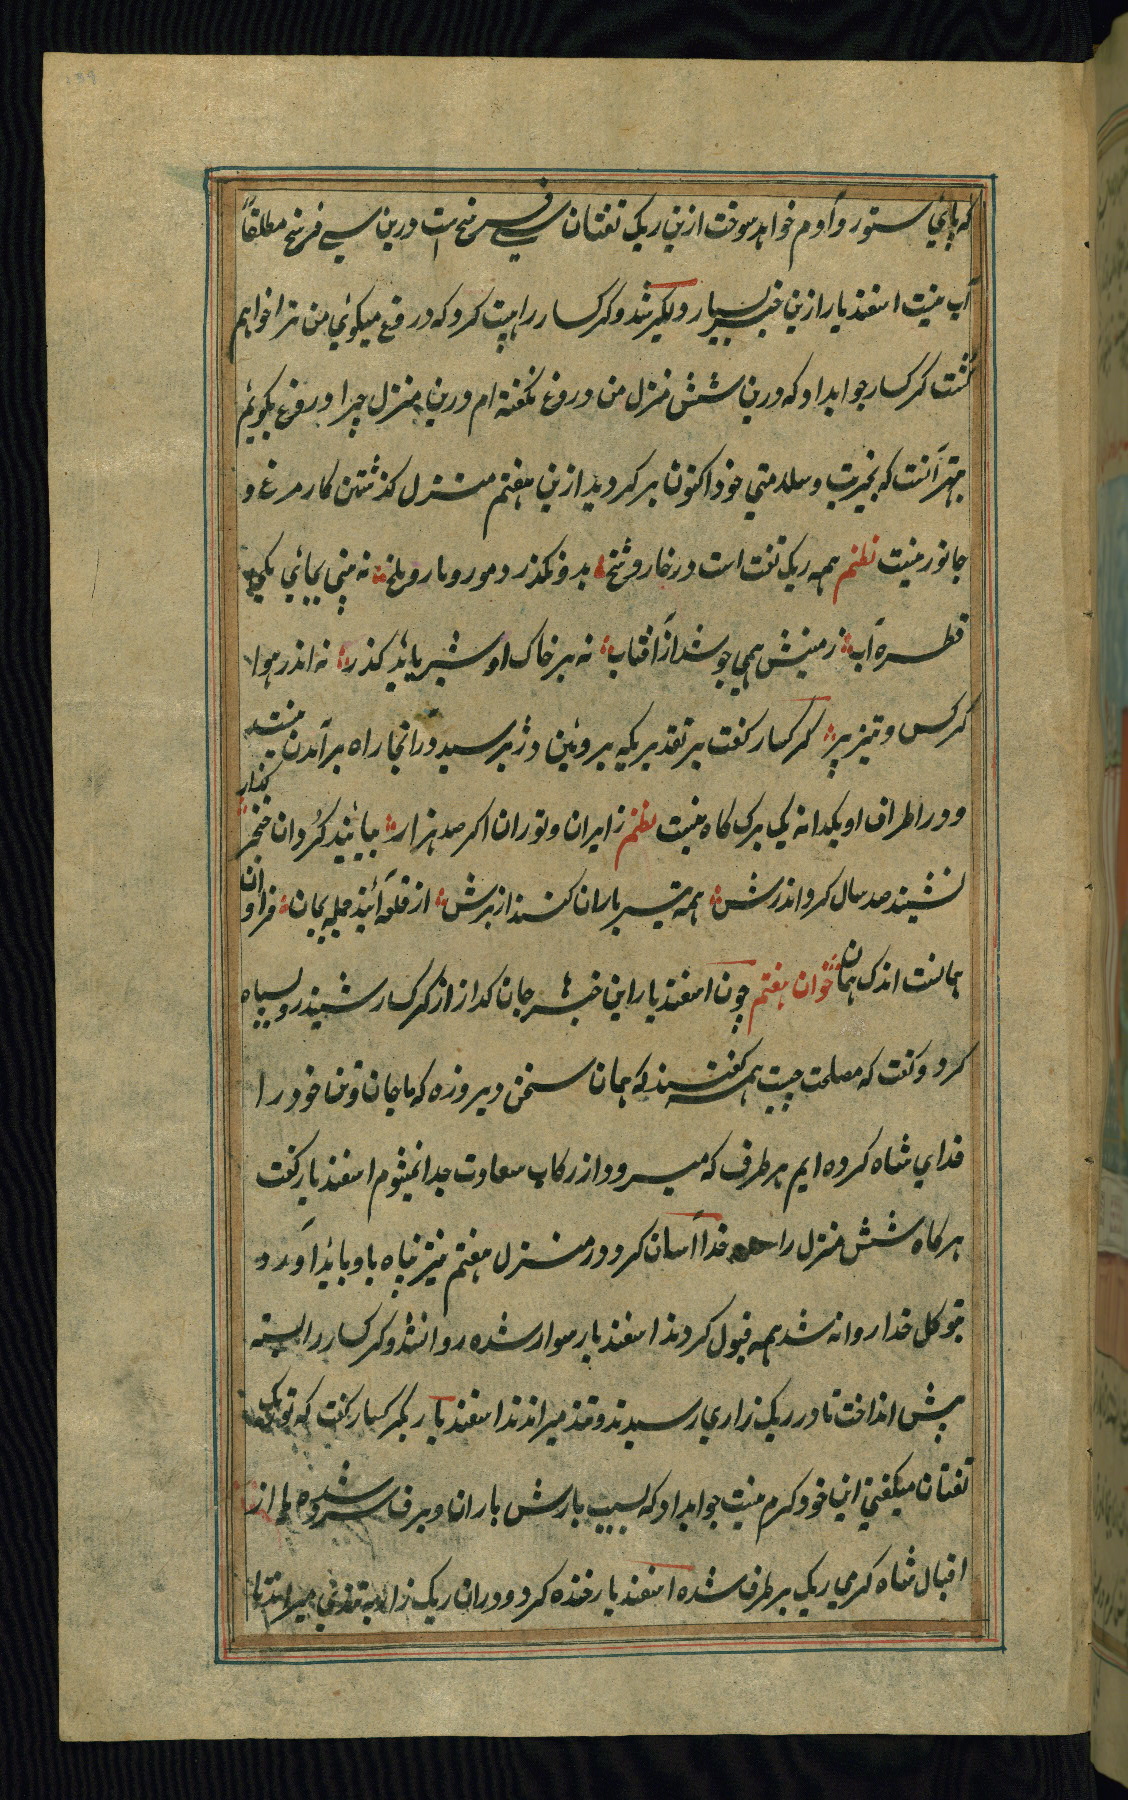 که پای ستور و آدم خواهد سوخت ازین ریک تفتان سی فرسخ است درین سی فرسخ مطلقاً
آب نیست اسفندیار ازین خبر بسیار دلگیر شد و گرگسار را هیبت کرد که دروغ میگوئی من ترا خواهم
کشت گرگسار جوابداد که درین شش منزل من دروغ نگفته ام درین منزل چرا دروغ بگویم
بهتر آنست که بخیریت و سلامتی خود اکنون برگردید ازین هفتم منزل گذشتن کار مرغ و
جانور نیست نظم همه ریک تفت است در خار و شخ بدو نگذرد مور و مار و ملخ نه بینی بجائی یکی
قطره آب زمینش همی جوشد از آفتاب نه بر خاک او شیر یابد گذر نه اندر هوا
کرکس و تیز پر گرگسار گفت بر تقدیریکه بروئین دژ برسید در آنجا راه برآمدن نیست
و در اطراف او یکدانه یک برک کاه نیست نظم ز ایران و توران اگر صد هزار بیایند گردان خنجر گذار
نشیند صد سال گرد اندرش همه تیر باران کنند از برش از قلعه آیند جمله بجان فراوان
همانست اندک همان خوان هفتم چون اسفندیار این خبر جان گداز از گرگسار شنید رو سیاه
کرد و گفت که مصلحت چیست همه گفتند که همان سخن دیروزه که ما جان و تن خود را
فدای شاه کرده ایم هر طرف که میرود از رکاب سعادت جدا نمیشوم اسفندیار گفت
هرگاه شش منزل را خدا آسان کرد در منزل هفتم نیز پناه باو باید آورد
بتوکل خدا روانه شد همه قبول کردند اسفندیار سوار شده روانشد و گرگسار را بسته
پیش انداخت تا در ریک زاری رسیدند و تند میراندند اسفندیار بگرگسار گفت که تو ریک
تفتان میگفتی این خود گرم نیست جوابداد که بسبب بارش باران و برف سرد شده یا از
اقبال شاه گرمی ریک برطرف شده اسفندیار خنده کرد و دران ریک زار بتندی میراندند تا